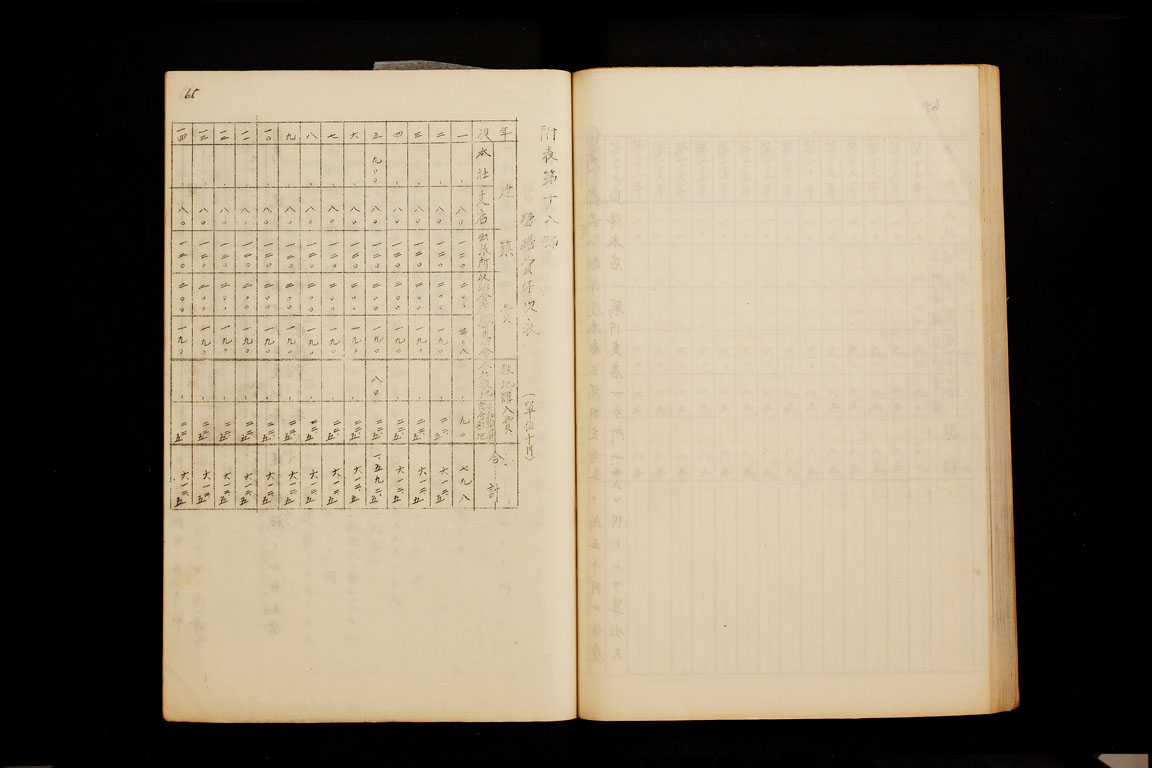 65
附表第十八號
營繕費年次表
(單位千円)
年次 建築費 本社 支店 出張所 敷地購入費 合計
一 、 八〇 一二〇 二〇〇 三〇八 、 九〇 七九八
二 、 八〇 一二〇 二〇〇 一九〇 、 二二、五 六一二、五
三 、 八〇 一二〇 二〇〇 一九〇 、 二二、五 六一二、五
四 、 八〇 一二〇 二〇〇 一九〇 、 二二、五 六一二、五
五 九〇〇 八〇 一二〇 二〇〇 一九〇 八〇 二二、五 一、五九二、五
六 、 八〇 一二〇 二〇〇 一九〇 、 二二、五 六一二、五
七 、 八〇 一二〇 二〇〇 一九〇 、 二二、五 六一二、五
八 、 八〇 一二〇 二〇〇 一九〇 、 二二、五 六一二、五
九 、 八〇 一二〇 二〇〇 一九〇 、 二二、五 六一二、五
一〇 、 八〇 一二〇 二〇〇 一九〇 、 二二、五 六一二、五
一一 、 八〇 一二〇 二〇〇 一九〇 、 二二、五 六一二、五
一二 、 八〇 一二〇 二〇〇 一九〇 、 二二、五 六一二、五
一三 、 八〇 一二〇 二〇〇 一九〇 、 二二、五 六一二、五
一四 、 八〇 一二〇 二〇〇 一九〇 、 二二、五 六一二、五